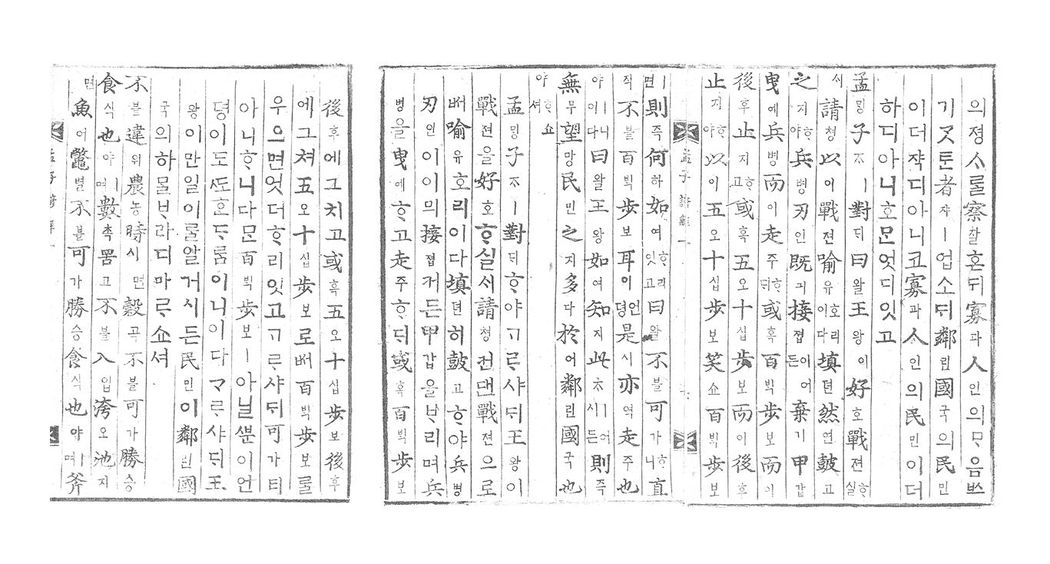 의졍ᄉᆞᄅᆞᆯ察찰혼ᄃᆡ寡과人인의ᄆᆞᄋᆞᆷᄡᅳ
기ᄀᆞᆮᄐᆞᆫ者쟈ㅣ업소ᄃᆡ鄰린國국의民민
이더쟉디아니코寡과人인의民민이더
하디아니호ᄆᆞᆫ엇디잇고
孟ᄆᆡᆼ子ᄌᆞㅣ對ᄃᆡ曰왈王왕이好호戰젼ᄒᆞ실
ᄉᆡ請쳥以이戰젼喩유호리이다塡뎐然연鼓고
之지ᄒᆞ야兵병刃인既긔接졉이어든棄기甲갑
曳예兵병而이走주호ᄃᆡ或혹百ᄇᆡᆨ步보而이
後후止지ᄒᆞ고或혹五오十십步보而이後후
止지ᄒᆞ야以이五오十십步보笑쇼百ᄇᆡᆨ步보
孟子諺解一
ㅣ면則즉何하如여ᄒᆞ리잇고曰왈不불可가ᄒᆞ니直
직不불百ᄇᆡᆨ步보耳이언뎡是시亦역走주也
야ㅣ니이다曰왈王왕如여知지此ᄎᆞㅣ어시든則즉
無무望망民민之지多다於어鄰린國국也
야ᄒᆞ쇼셔
孟ᄆᆡᆼ子ᄌᆞㅣ對ᄃᆡᄒᆞ야ᄀᆞᄅᆞ샤ᄃᆡ王왕이
戰젼을好호ᄒᆞ실ᄉᆡ請쳥컨댄戰젼으로
ᄡᅥ喩유호리이다塡뎐히鼓고ᄒᆞ야兵병
刃인이이의接졉거든甲갑을ᄇᆞ리며兵
병을曳예ᄒᆞ고走주호ᄃᆡ或혹百ᄇᆡᆨ步보
後후에그치고或혹五오十십步보後후
에그쳐五오十십步보로ᄡᅥ百ᄇᆡᆨ步보ᄅᆞᆯ
우으면엇더ᄒᆞ리잇고ᄀᆞᄅᆞ샤ᄃᆡ可가티
아니ᄒᆞ니다ᄆᆞᆫ百ᄇᆡᆨ步보ㅣ아닐ᄲᅮᆫ이언
뎡이도ᄯᅩᄒᆞᆫᄃᆞ롬이니이다ᄀᆞᄅᆞ샤ᄃᆡ王
왕이만일이ᄅᆞᆯ알거시든民민이鄰린國
국의하믈ᄇᆞ라디마ᄅᆞ쇼셔
不불違위農농時시면穀곡不불可가勝승
食식也야ㅣ며數촉罟고不불入입洿오池지
면魚어鼈별不불可가勝승食식也야ㅣ며斧